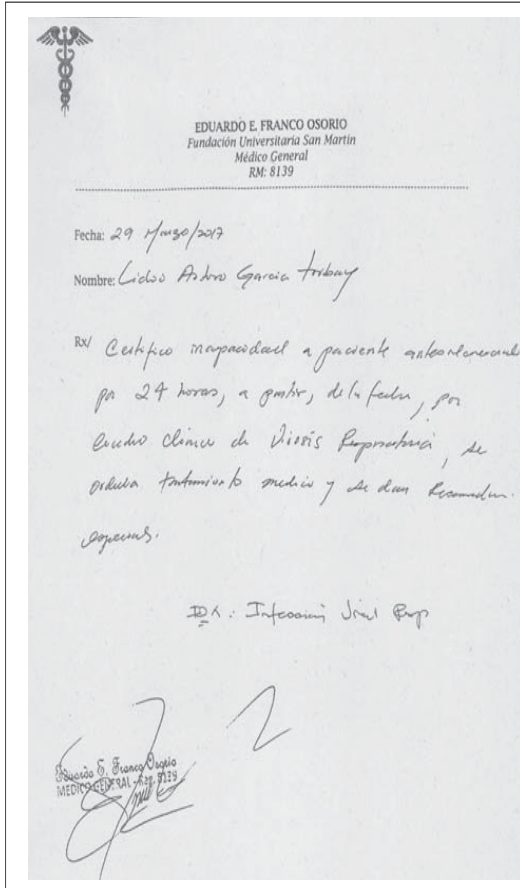 EDUARDO E. FRANCO OSORIO
Fundación Universitaria San Martin
Médico General
RM: 8139
Fecha: 29 Marzo/2017
Nombre: Garcia
Rx/ Certifico incapacidad a paciente
por 24 horas, a partir, de la fecha, por
Cuadro clinico de Virosis Respiratoria, se
ordena tratamiento medico y se dan
especiales.
IDX: Infeccion Viral Resp
Eduardo E. Franco Osorio
MEDICO GENERAL - Reg. 8139